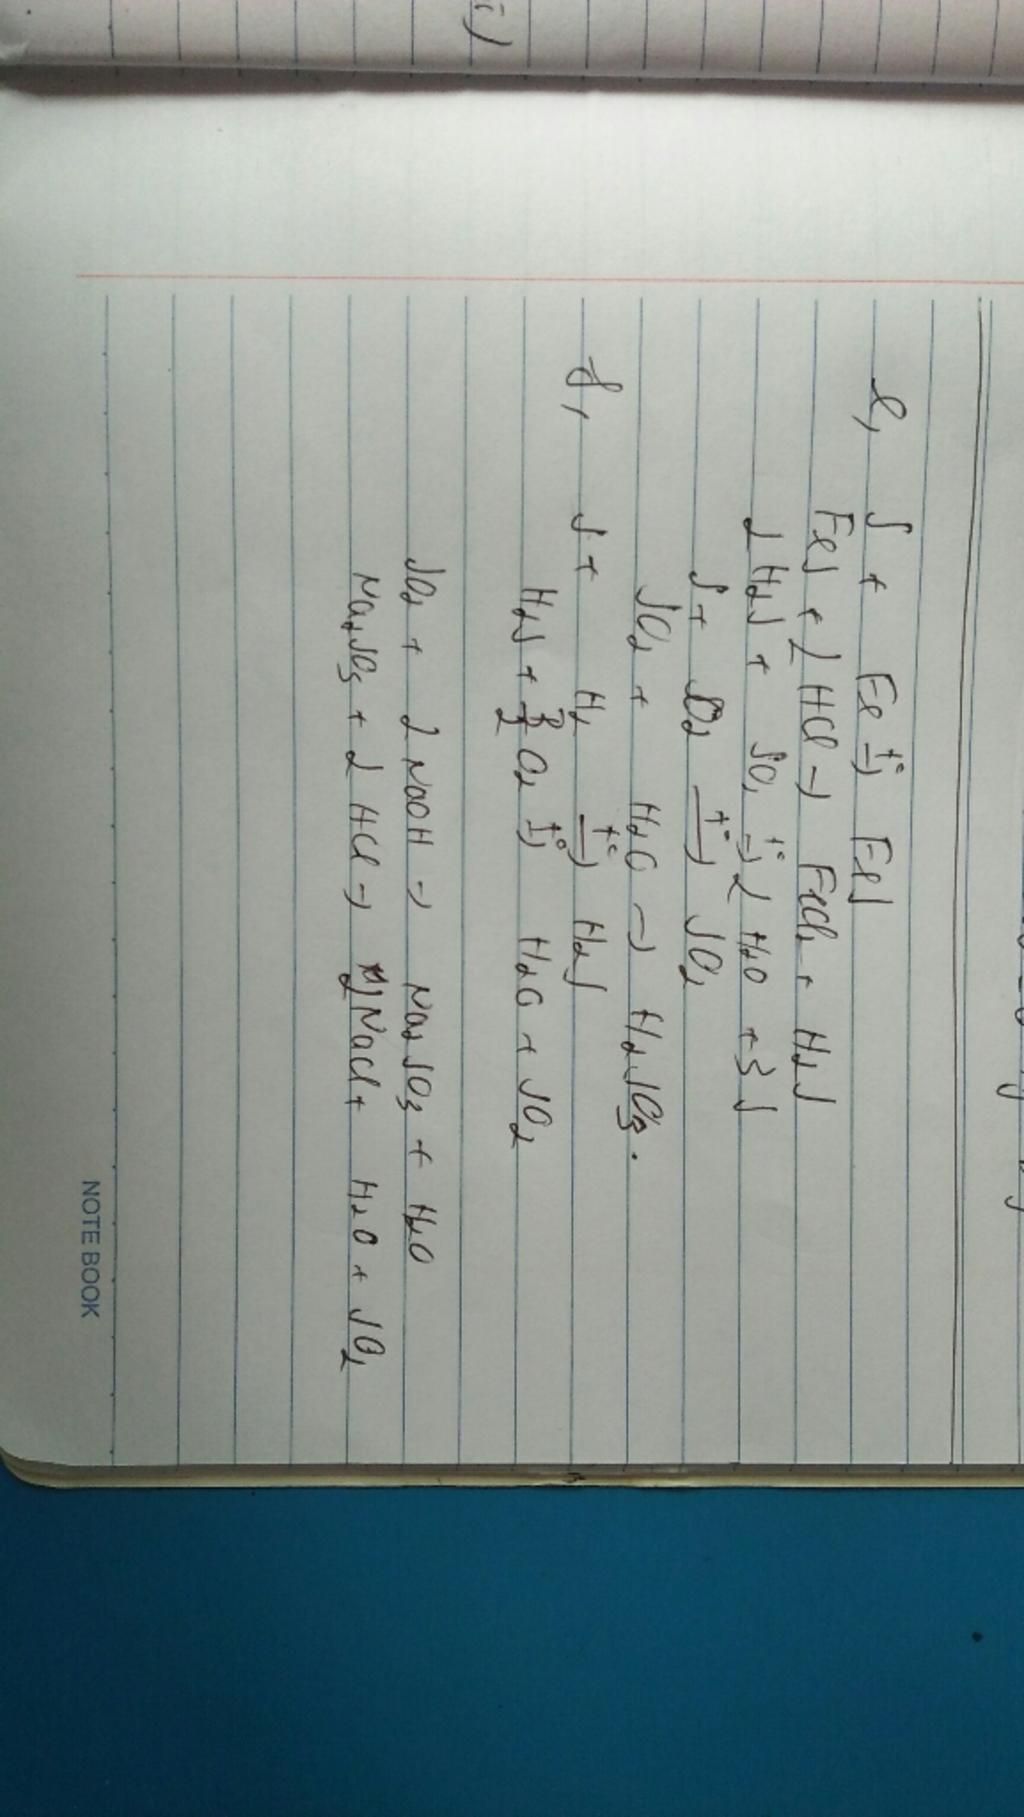 e, S + Fe t°→ FeS
FeS + 2 HCl → FeCl2 + H2S
2 H2S + SO2 t°→ 2 H2O + 3 S
S + O2 t°→ SO2
SO2 + H2O → H2SO3.
f, S + H2 t°→ H2S
H2S + 3/2 O2 t°→ H2O + SO2
SO2 + 2 NaOH → Na2SO3 + H2O
Na2SO3 + 2 HCl → 2 NaCl + H2O + SO2
NOTE BOOK